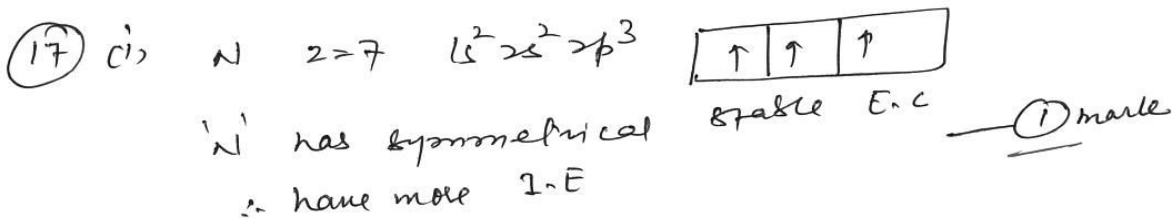 17 (i) N Z=7 1s² 2s² 2p³ ↑ ↑ ↑
'N' has symmetrical stable E.C
∴ have more I.E — 1 mark